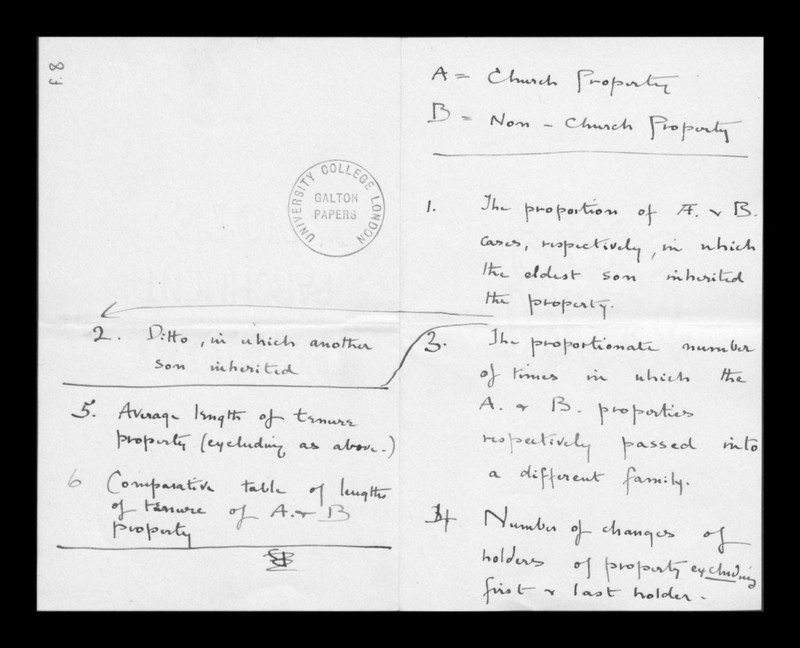 F. 8
A = Church Property
B = Non - Church Property
1. The proportion of A. & B.
cases, respectively, in which
the eldest son inherited
the property.
2. Ditto, in which another
son inherited
3. The proportionate number
of times in which the
A. & B. properties
respectively passed into
a different family.
4 Number of changes of
holders of property excluding
first & last holder.
5. Average length of tenure
property (excluding as above.)
6 Comparative table of lengths
of tenure of A. & B
property
UNIVERSITY COLLEGE LONDON
GALTON
PAPERS